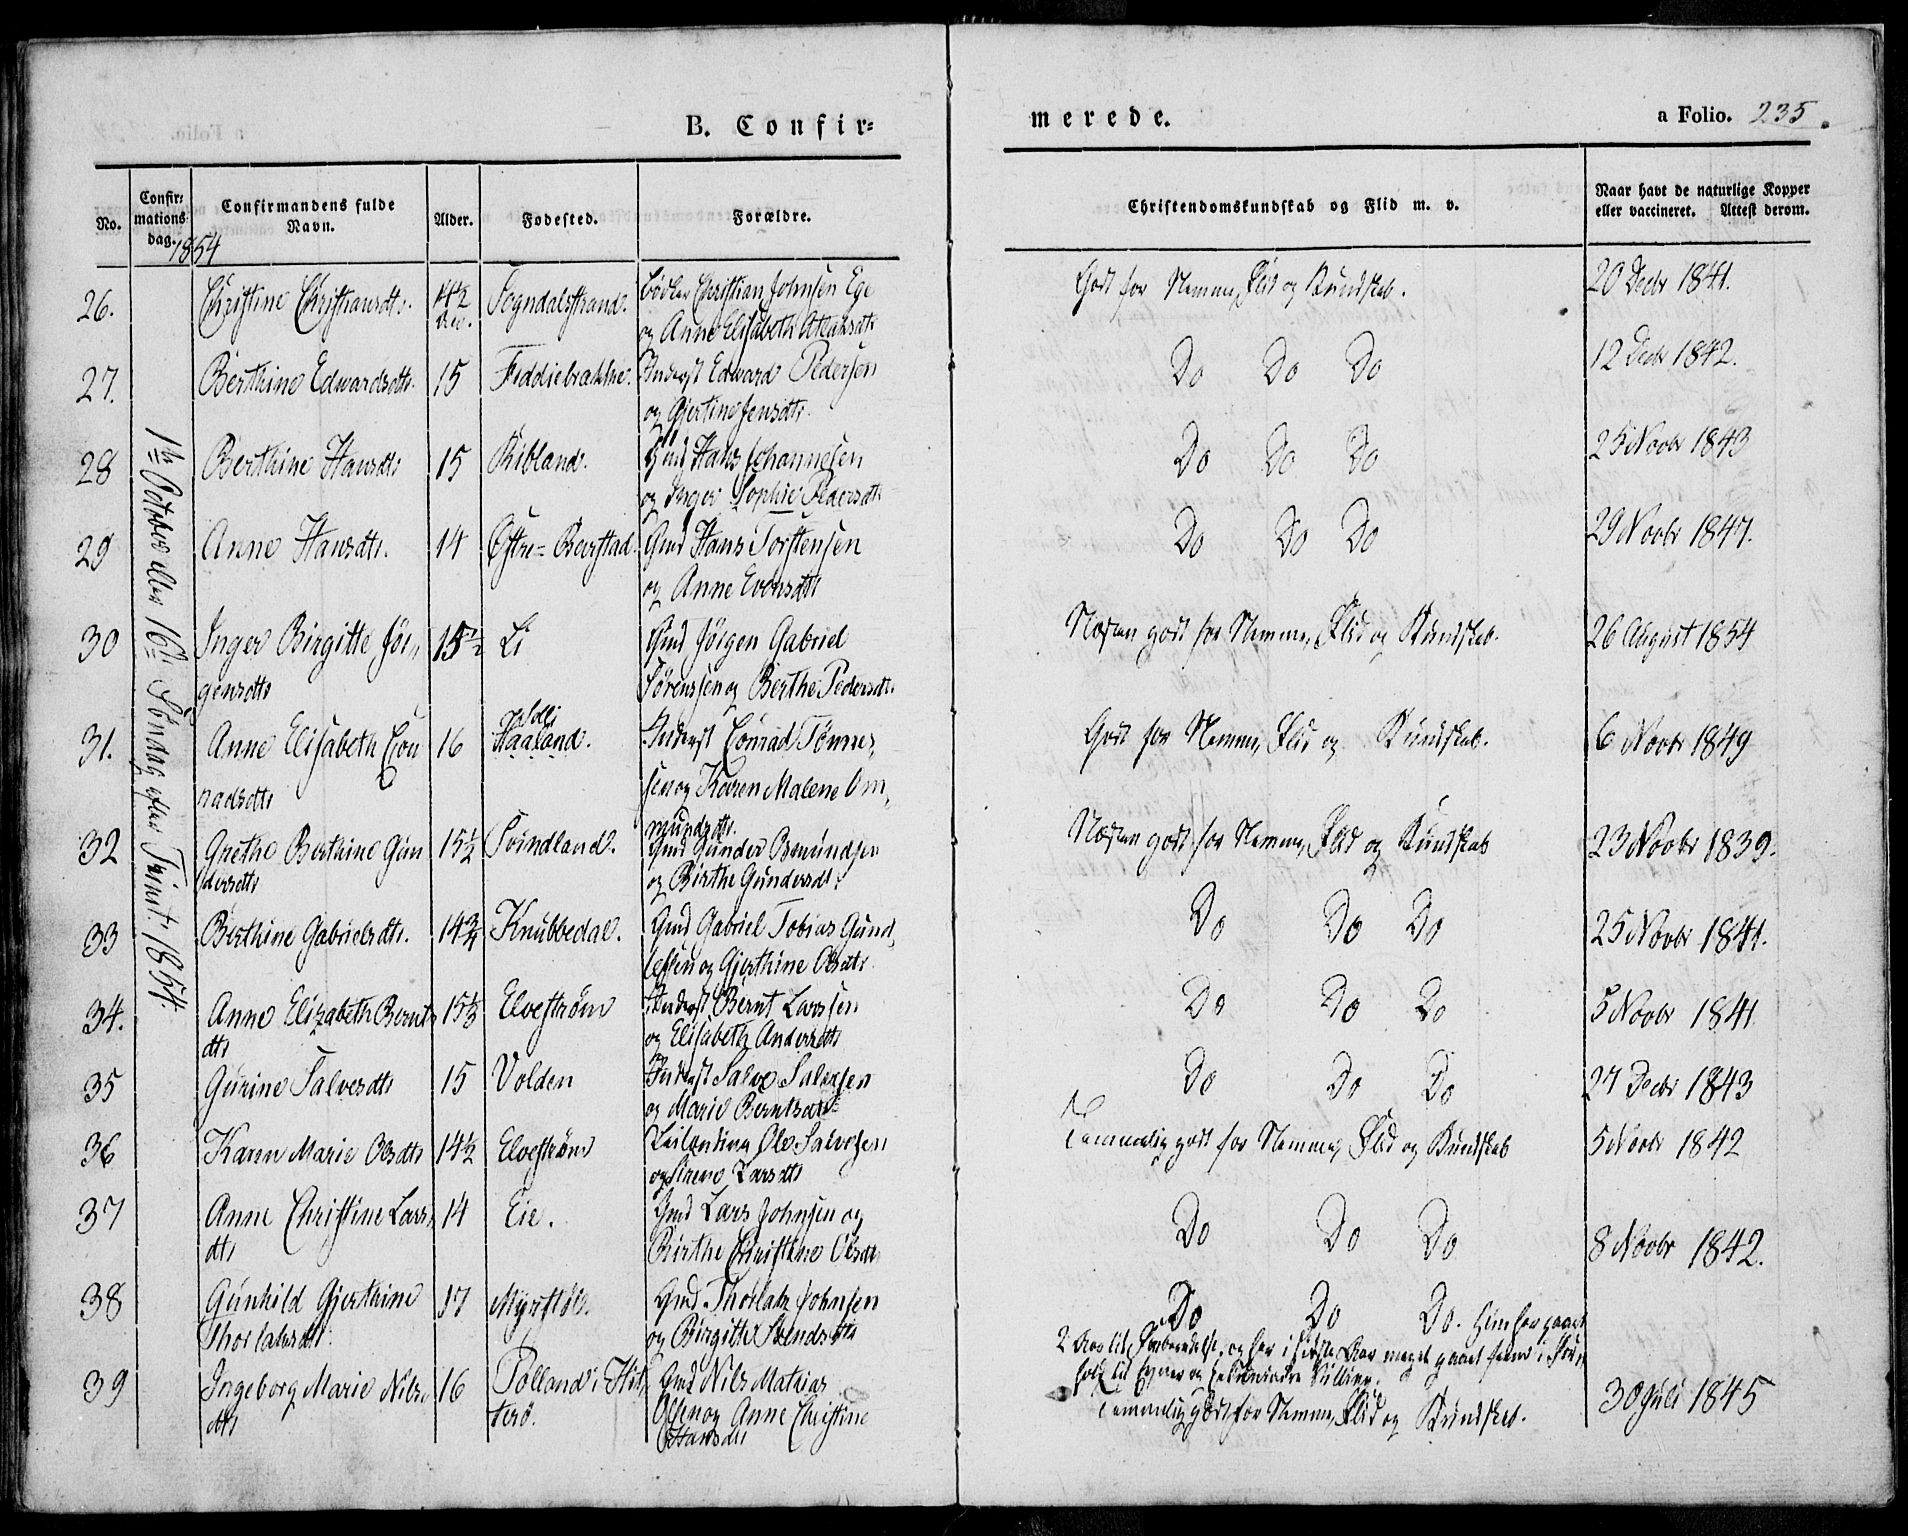 B. Confir=
merede.
a Folio. 235.
No.
Confir=
mations
dag.
1854
Confirmandens fulde
Navn.
Alder.
Fødested.
Forældre.
Christendomskundskab og Flid m. v.
Naar havt de naturlige Kopper
eller vaccineret. Attest derom.
1ste October eller 16de Søndag efter Trinit. 1854.
26. Christine Christiansdtr. 14½ Sogndalsstrand. Christian Johnsen Ege
og Anne Elisabeth
Godt for Nemme, Flid og Kundskab. 20 Decbr 1841.
27. Berthine Edwardsdtr. 15 Feddiebrække. Inderst Edward Pedersen
og Gjertine Jensdtr.
Do Do Do 12 Decbr 1842.
28 Berthine Hansdtr 15 Ribland. Gmd Hans Johannesen
og Inger Sophie Pedersdtr
Do Do Do 25 Novbr 1843
29 Anne Hansdtr. 14 Østre=Barstad. Gmd Hans Torstensen
og Anne Evensdtr
Do Do Do 29 Novbr 1847.
30 Inger Birgitte Jør„ 15½ Li Gmd Jørgen Gabriel
gensdtr Sørenssen og Berthe Pedersdtr.
Næsten godt for Nemme, Flid og Kundskab. 26 August 1854
31. Anne Elisabeth Con 16 Haaland. Inderst Conrad Tønnes„
radsdtr sen og Karen Malene Om„
mundsdtr.
Godt for Nemme, Flid og Kundskab. 6 Novbr 1849
32 Grethe Berthine Gun 15½ Svindland. Gmd Gunder Osmundsen
dersdtr og Birthe Gundersdtr.
Næsten godt for Nemme, Flid og Kundskab 23 Novbr 1839.
33 Berthine Gabrielsdtr. 14¾ Knubbedal. Gmd Gabriel Tobias Gund„
lessen og Gjerthine Olsdtr.
Do Do Do 25 Novbr 1841.
34. Anne Elizabeth Bernts 15⅓ Elvestrøm Inderst Bernt Larssen
dtr og Elisabeth Andersdtr
Do Do Do 5 Novbr 1841
35 Gurine Salvesdtr 15 Volden Inderst Salve Salvesen
og Marie Berntsdtr
Do Do Do 27 Decbr 1843
36 Karen Marie Olsdtr 14½ Elvestrøm Leilænding Ole Salvesen
og Sirene Larsdtr
Temmelig godt for Nemme, Flid og Kundskab 5 Novbr 1842
37 Anne Christine Lars„ 14 Eie. Gmd Lars Johnsen og
dtr Birthe Christine Olsdtr
Do Do Do 8 Novbr 1842.
38 Gunhild Gjerthine 17 Myrstøl. Gmd Thorlak Johnsen
Thorlaksdtr. og Birgithe Svendsdtr
Do Do Do. Hun har gaaet
2 Aar til Forberedelse, og har i sidste Aar meget gaaet frem i For„
hold til Evner og
39 Ingeborg Marie Nils„ 16 Polland i Hit„ Gmd Nils Mathias
dtr terø. Olsen og Anne Christine
Hansdtr
Temmelig godt for Nemme, Flid og Kundskab. 30 Juli 1845